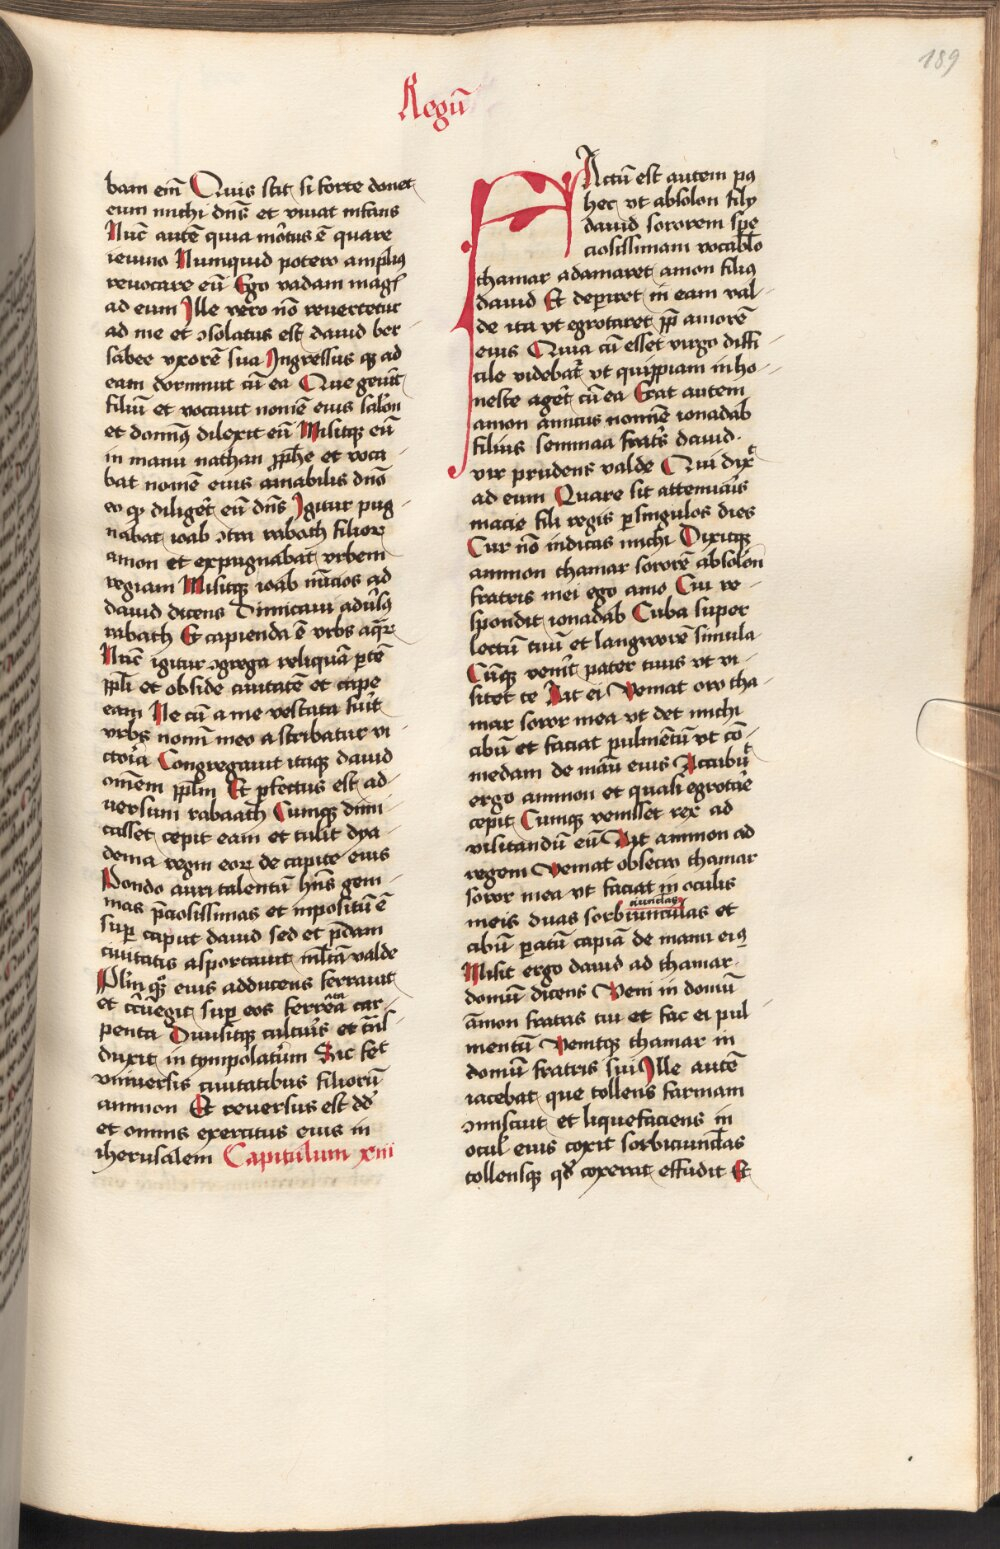 189
Regū
bam em̄ Quis scit si forte donet
eum michi dn̄s et viuat infans
Nūc autē quia mortuus ē quare
ieiuno Numquid potero amplius
reuocare eū Ego vadam magis
ad eum Ille vero nō reuertetur
ad me et ꝯsolatus est dauid ber
sabee vxorē sua Ingressus qꝫ ad
eam dormiuit cū ea Que genuit
filiū et vocauit nomē eius salon
et dominꝰ dilexit eū Misitqꝫ eū
in manu nathan ꝓphe et voca
bat nomē eius amabilis dn̄o
eo qꝫ diligeret eū dn̄s Igitur pug
nabat ioab ꝯtra rabath filioꝝ
amon et expugnabat vrbem
regiam Misitqꝫ ioab nūcios ad
dauid dicens Dimicaui aduersꝰ
rabath Et capienda ē vrbs aqꝝ
Nūc igitur ꝯgrega reliquā ꝑtē
ppl̄i et obside ciuitatē et cape
eam Ne cū a me vastata fuīt
vrbs nom̄i meo ascribatur vi
ctoria Congregauit itaqꝫ dauid
om̄em ppl̄m Et ꝑfectus est ad
uersum rabaath Cumqꝫ dimi
casset cepit eam et tulit dya
dema regin eoꝝ de capite eius
Pondo auri talentū hn̄s gem
mas p̄ciosissimas et impositū ē
suꝑ caput dauid sed et p̄dam
ciuitatis asportauit ml̄tam valde
Pl̄m qꝫ eius adducens serrauit
et cͬcūegit suꝑ eos ferrēa car
penta Diuisitqꝫ cultris et trās
duxit in typolatum Sic fec̄
vniuersis ciuitatibus filiorū
ammon Et reuersus est dd̄
et omnis exercitus eius in
iherusalem Capitulum xiii
Factū est autem pꝰ
hec vt absolon filij
dauid sororem spe
ciosissimam vocablo
thamar adamaret amon filiꝰ
dauid Et deꝑiret in eam val
de ita vt egrotaret ꝓp̄ amorē
eius Quia cū esset virgo diffi
cile videbatr̄ vt quippiam inho
neste aget̄ cū ea Erat autem
amon amicus nomine ionadab
filius semmaa fratris dauid
vir prudens valde Qui dixͭ
ad eum Quare sit attenuaris
macie fili regis ꝑ singulos dies
Cur nō indicas michi Dixitqꝫ
ammon thamar sororē absolon
fratris mei ego amo Cui re
spondit ionadab Cuba super
lectū tuū et langworē simula
Cūqꝫ venīt pater tuus vt vi
sitet te Dic ei Veniat oro tha
mar soror mea vt det michi
cibū et faciat pulmentū vt cō
medam de manu eius Accubuͭ
ergo ammon et quasi egrotare
cepit Cumqꝫ venisset rex ad
visitandū eū Ait ammon ad
regem Veniat obsecro thamar
soror mea vt faciat in oculis
meis duas sorbiunculas et
ciunclas
cibū ꝑatū capiā de manu eiꝰ
Misit ergo dauid ad thamar
domū dicens Veni in domū
āmon fratris tui et fac ei pul
mentū Venitqꝫ thamar in
domū fratris sui Ille autē
iacebat que tollens farinam
ꝯmiscuit et liquefaciens in
ocul̄ eius coxit sorbiciunclas
tollensqꝫ qd̄ coxerat effudit Et